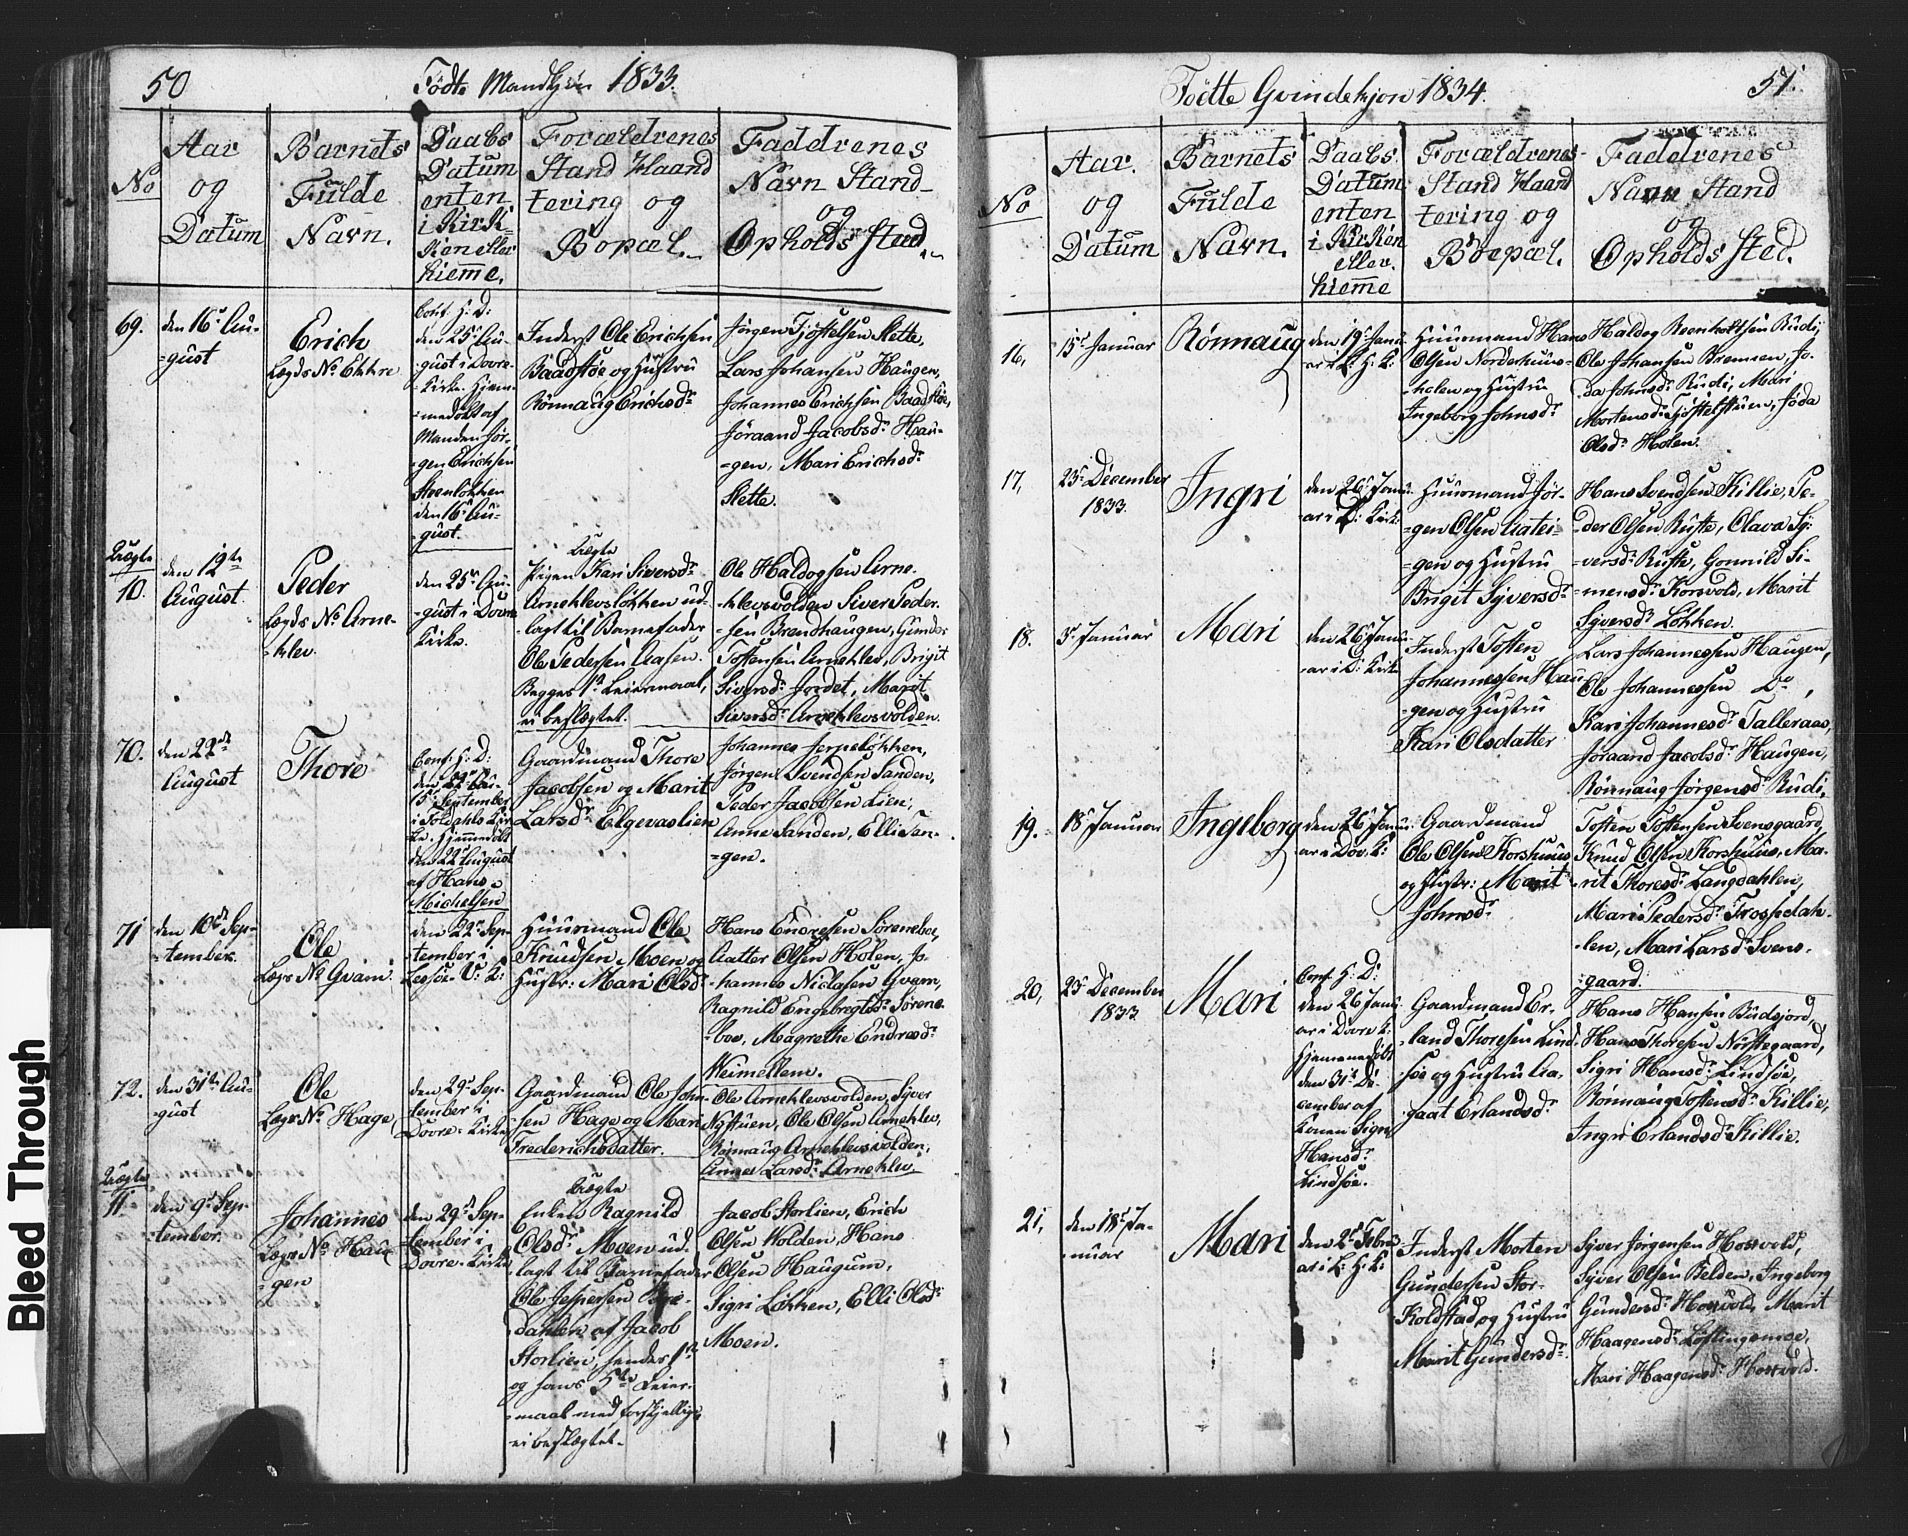 50
Födte Mandkjön 1833.
No
Aar
og
Datum
Barnets
Fulde
Navn.
Daabs
Datum
enten
i Kir-
ken eller
hieme.
Forældrenes
Stand Haand
tering og
Bopæl.
Faddrenes
Navn Stand
og
Opholds Sted.
69.
den 16d Au-
gust
Erich
Lægds No Ekkre
Conf. H: D:
den 25d Au-
gust i Dovre
Kirke. Hjem-
medöbt af
Manden Jör-
gen Erichsen
Steenlökken
den 16d Au-
gust.
Inderst Ole Erichsen
Baadstöe og Hustru
Rönnaug Erichsdr
Jörgen Tjöstelsen Slette,
Lars Johansen Haugen,
Johannes Erichsen Baadstöe,
Jöraand Jacobsdr Hau-
gen, Mari Erichsdr
Slette.
Uægte
10.
den 12te
August.
Peder
Lægds No Arne-
klev.
den 25d Au-
gust i Dovre
Kirke.
Uægte
Pigen Kari Siversdr
Arneklevslökken ud-
lagt til Barnefader
Ole Pedersen Aasen.
Begges 1st Leiermaal,
ei beslægtet.
Ole Haldogsen Arne-
klevsvolden Siver Peder-
sen Brendhaugen, Gunder
Tostensen Arneklev, Brigit
Siversdr Jordet, Marit
Siversdr Arneklevsvolden.
70.
den 22de
August
Thore
Conf. H: D:
den 22 Au-
15d September
i Foldahls Kir-
ke. Hjemmedöbt
den 22d August
af Hans
Michelsen
Gaardmand Thore
Jacobsen og Marit
Larsdr Elgevaslien
Johannes Jerpelökken,
Jörgen Svendsen Sanden,
Peder Jacobsen Lien,
Anne Sanden, Elli Tan-
gen.
71
den 10d Sep-
tember.
Ole
Lægs No Qvam.
den 22d Sep-
tember i
Lesjöe U: K:
Huusmand Ole
Knudsen Moen og
Hustr: Mari Olsdr
Hans Endresen Söreneboe,
Aatter Olsen Holen, Jo-
hannes Niclasen Qvam,
Ragnild Engebregtsdr Sörene-
boe, Magrethe Endresdr
Neimellem.
72.
den 31te Au-
gust
Ole
Lægs No Hage
den 29d Sep-
tember i
Dovre Kirke
Gaardmand Ole John-
sen Hage og Mari
Frederichsdatter.
Ole Arneklevsvolden, Syver
Nystuen, Ole Olsen Arneklev,
Rönnaug Arneklevsvolden,
Anne Larsdr Arneklev.
Uægte
11.
den 9d Sep-
tember.
Johannes
Lægs No Hau-
gen
den 29d Sep-
tember i
Dovre Kirke
Uægte
Enken Ragnild
Olsdr Moen ud-
lagt til Barnefader
Ole Jespersen
dahlen af Jacob
Storlien, hendes 1st
og hans 5te Leier-
maal med forskjellige,
ei beslægtet.
Jacob Storlien, Erich
Olsen Volden, Hans
Olsen Haugum,
Sigri Lökken, Elli Olsdr
Moen.
Födte Qvindekjön 1834.
51.
No
Aar.
og
Datum
Barnets
Fulde
Navn.
Daabs
Datum
enten
i Kirken
eller
hieme
Forældrenes
Stand Haand
tering og
Boepæl.
Faddrenes
Navn Stand
og
Opholds Sted.
16,
15d Januar
Rönnaug
den 19d Janu-
ar i L: H: K:
Huusmand Hans
Olsen Norderhuus-
holen og Hustru
Ingeborg Johnsdr
Haldog Reenholdtsen Rudi,
Ole Johansen Bremsen, Jo-
da Johnsdr Rudi, Mari
Mortensdr Tjöstelstuen, Joda
Olsdr Holen.
17,
23d December
1833.
Ingri
den 26d Janu-
ar i D: Kirke
Huusmand Jör-
gen Olsen Aatei-
gen og Hustru
Brigit Syversdr
Hans Svendsen Killie, Pe-
der Olsen Ruste, Olava Sy-
versdr Ruste, Gonnild Si-
mensdr Korsvold, Marit
Syversdr Lökken.
18.
3d Januar
Mari
den 26d Janu-
ar i D: Kirke
Inderst Tosten
Johannessen Hau-
gen og Hustru
Kari Olsdatter
Lars Johannessen Haugen,
Ole Johannessen Do,
Kari Johannesdr Talleraas,
Jöraand Jacobsdr Haugen,
Rönnaug Jörgensdr Rudi,
19.
18d Januar
Ingeborg
den 26d Janu-
ar i Dov. K:
Gaardmand
Ole Olsen Korshuus
og Hustr: Marit
Johnsdr
Tosten Tostensen Svensgaard,
Knud Olsen Korshuus, Ma-
rit Thoresdr Langdahlen,
Mari Pedersdr Trosfedah-
len, Mari Larsdr Svens-
gaard.
20,
23d December
1833
Mari
Conf. H: D:
den 26 Janu-
ar i Dovre K:
Hjemmedöbt
den 31d De-
cember af
Konen Sigri
Hansdr
Lindsöe.
Gaardmand Er-
land Thoresen Lind-
söe og Hustru Aa-
gaat Erlandsdr
Hans Hansen Budsjord,
Hans Thoresen Norstegaard,
Sigri Hansdr Lindsöe,
Rönnaug Tostensdr Killie,
Ingri Erlandsdr Killie.
21,
den 18d Ja-
nuar
Mari
den 2d Febru-
ar i L: H: K:
Inderst Morten
Gundersen Stor-
Koldstad og Hustru
Marit Gundersdr
Syver Jörgensen Hosvold,
Syver Olsen Belden, Ingeborg
Gundersdr Hosvold, Marit
Haagensdr Löftingsmoe,
Mari Haagensdr Hosvold.
Bleed Through